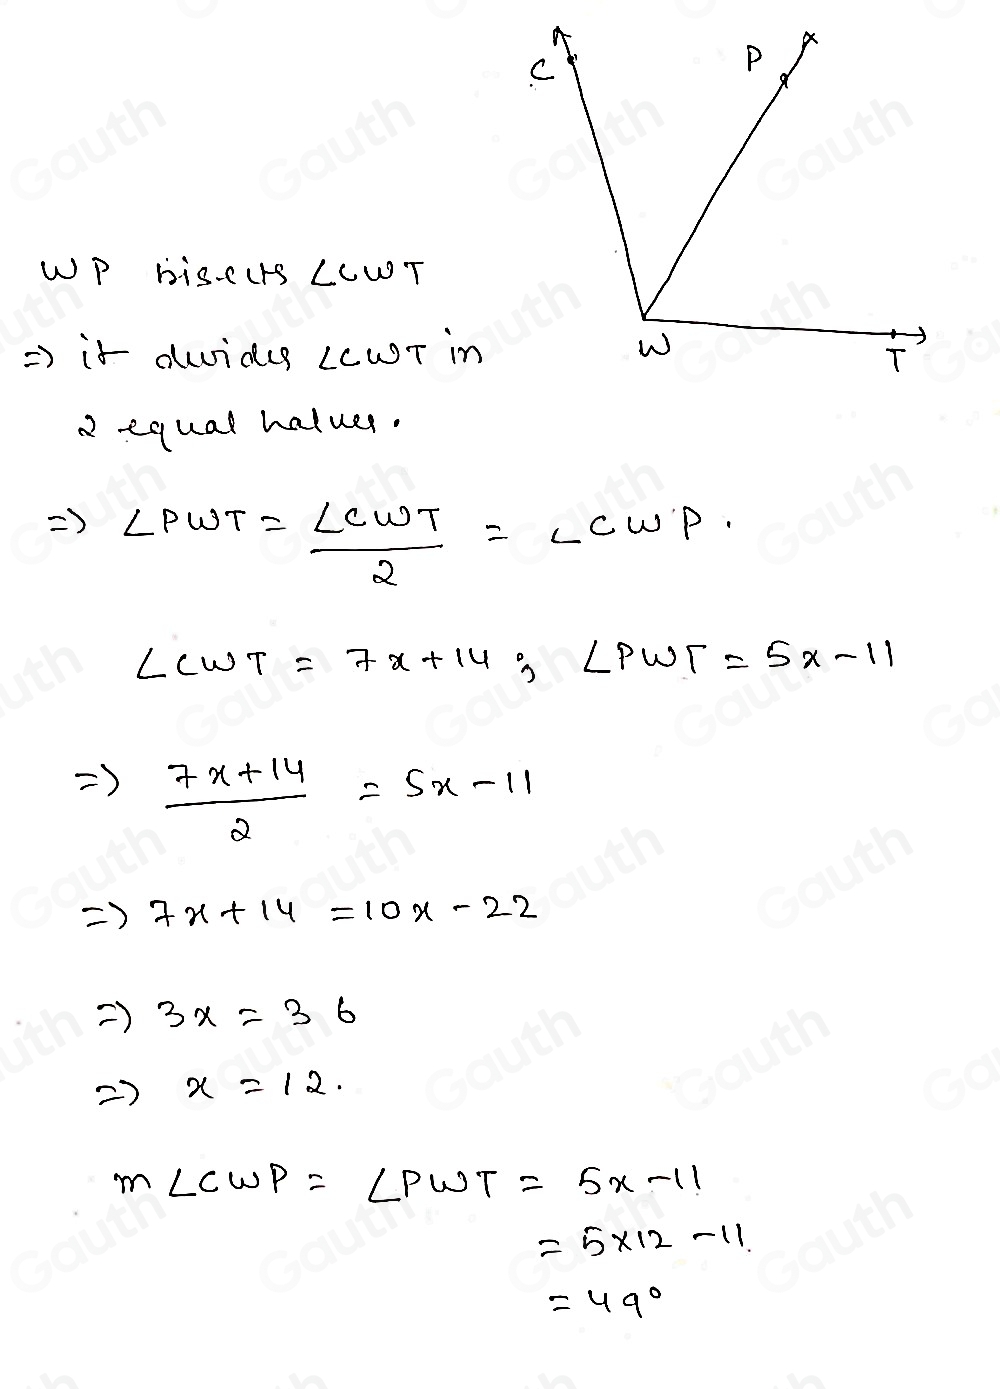 C
P
W
T
WP bisects ∠CWT
⇒ it divides ∠CWT in
2 equal halves.
⇒ ∠PWT = ∠CWT/2 = ∠CWP.
∠CWT = 7x+14 ; ∠PWT = 5x-11
⇒ (7x+14)/2 = 5x-11
⇒ 7x+14 = 10x-22
⇒ 3x = 36
⇒ x = 12.
m∠CWP = ∠PWT = 5x-11
= 5×12-11
= 49°
Gauth